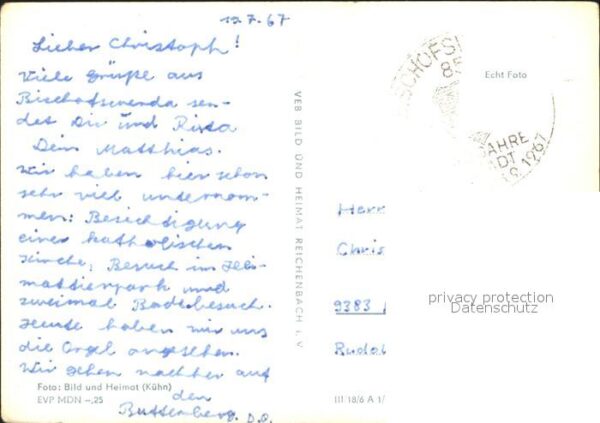 19.7.67
Lieber Christoph!
Viele Grüße aus
Bischofswerda sen-
det Dir und Rista
Dein Matthias.
Wir haben hier schon
sehr viel unternom-
men: Besichtigung
einer katholischen
Kirche, Besuch im
mattierpark und
zweimal Badebesuch.
Heute haben wir uns
die Orgel angesehen.
Wir gehen nachher auf
den
Butterberg. D.O.
Foto: Bild und Heimat (Kühn)
EVP MDN –,25
VEB BILD UND HEIMAT REICHENBACH i. V
III 18/6 A 1/
Echt Foto
SCHOFS
85
AHRE
DT
1967
Herr
Chris
9383
Rudol
privacy protection
Datenschutz